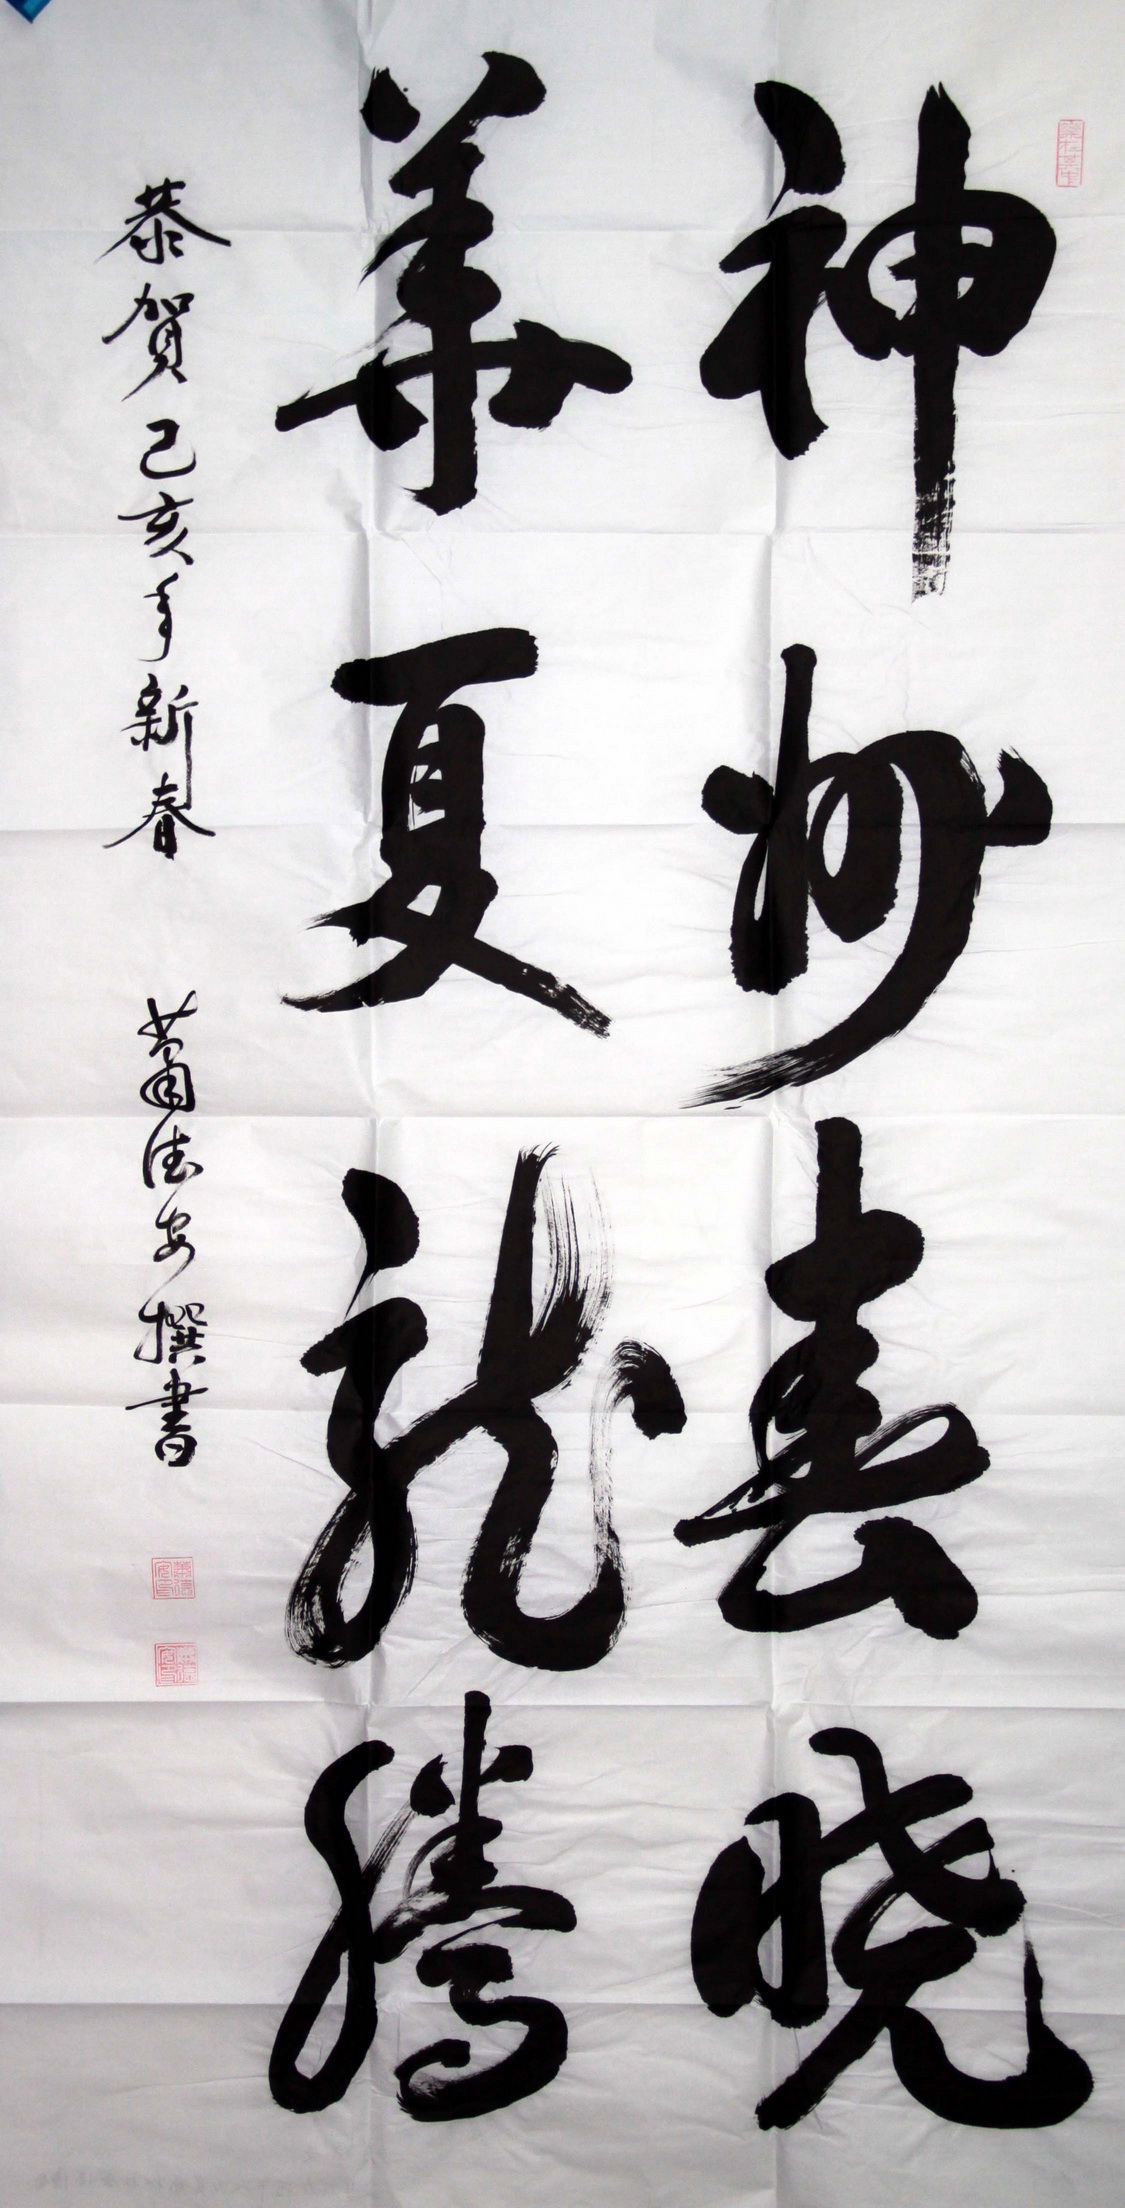 神州春晓
華夏龙腾
恭賀己亥年新春 萧德安撰書